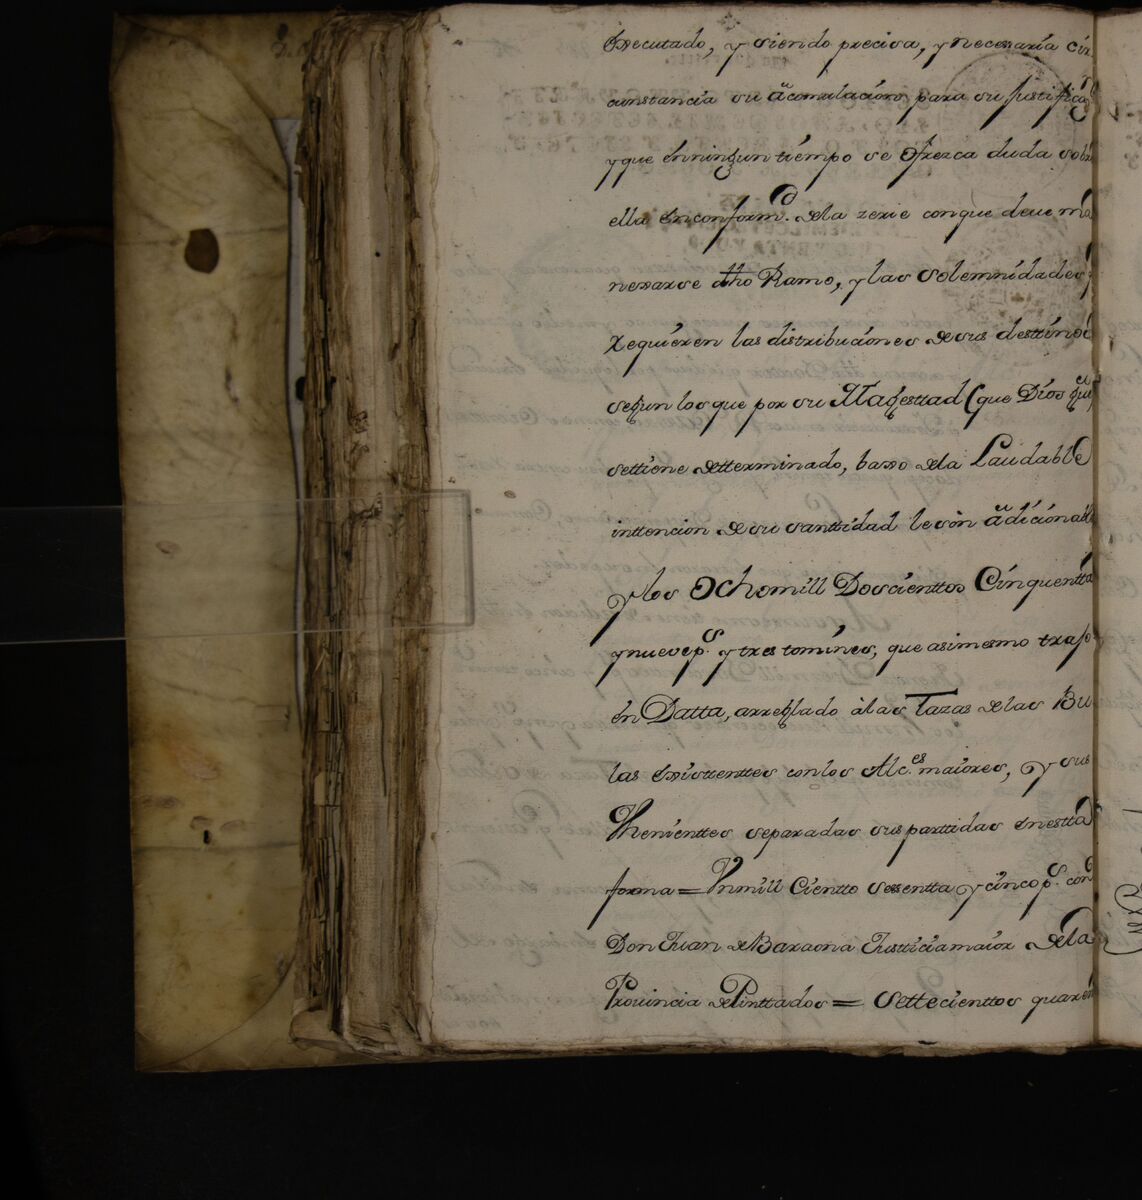 executado, y siendo precisa, y necessaria cir
cunstancia su acomulacion para su justifica
y que en ningun tiempo se ofrezca duda sobre
ella en conformd. de la zerie con que deve ma
nexarse dho Ramo, y las solemnidades q
requieren las distribuciones de sus desttinos
segun los que por su Magesttad (que Dios gue
settiene detterminado, baxo de la Laudable
inttencion de su santtidad le són ádicionable
y los Ochomill Doscienttos Cinquentta
y nueve ps. y tres tomines, que asimesmo trajo
en Datta, arreglado á las Tazas de las Bu
las existenttes con los Alces. maiores, y sus
Thenienttes separadas sus parttidas en estta
forma = Vn mill Cientto sesentta y cinco ps. con
Don Juan de Baraona Justticia maior de la
Provincia de Pinttados = Settecienttos quaren